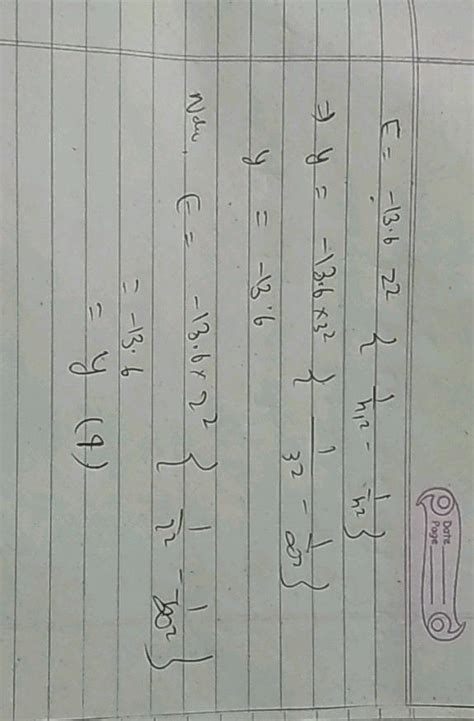 Date
Page
E = -13.6 z² { 1/n₁² - 1/n² }
⇒ y = -13.6 × 3² { 1/3² - 1/∞² }
y = -13.6
Now, E = -13.6 × 2² { 1/2² - 1/∞² }
= -13.6
= y (9)